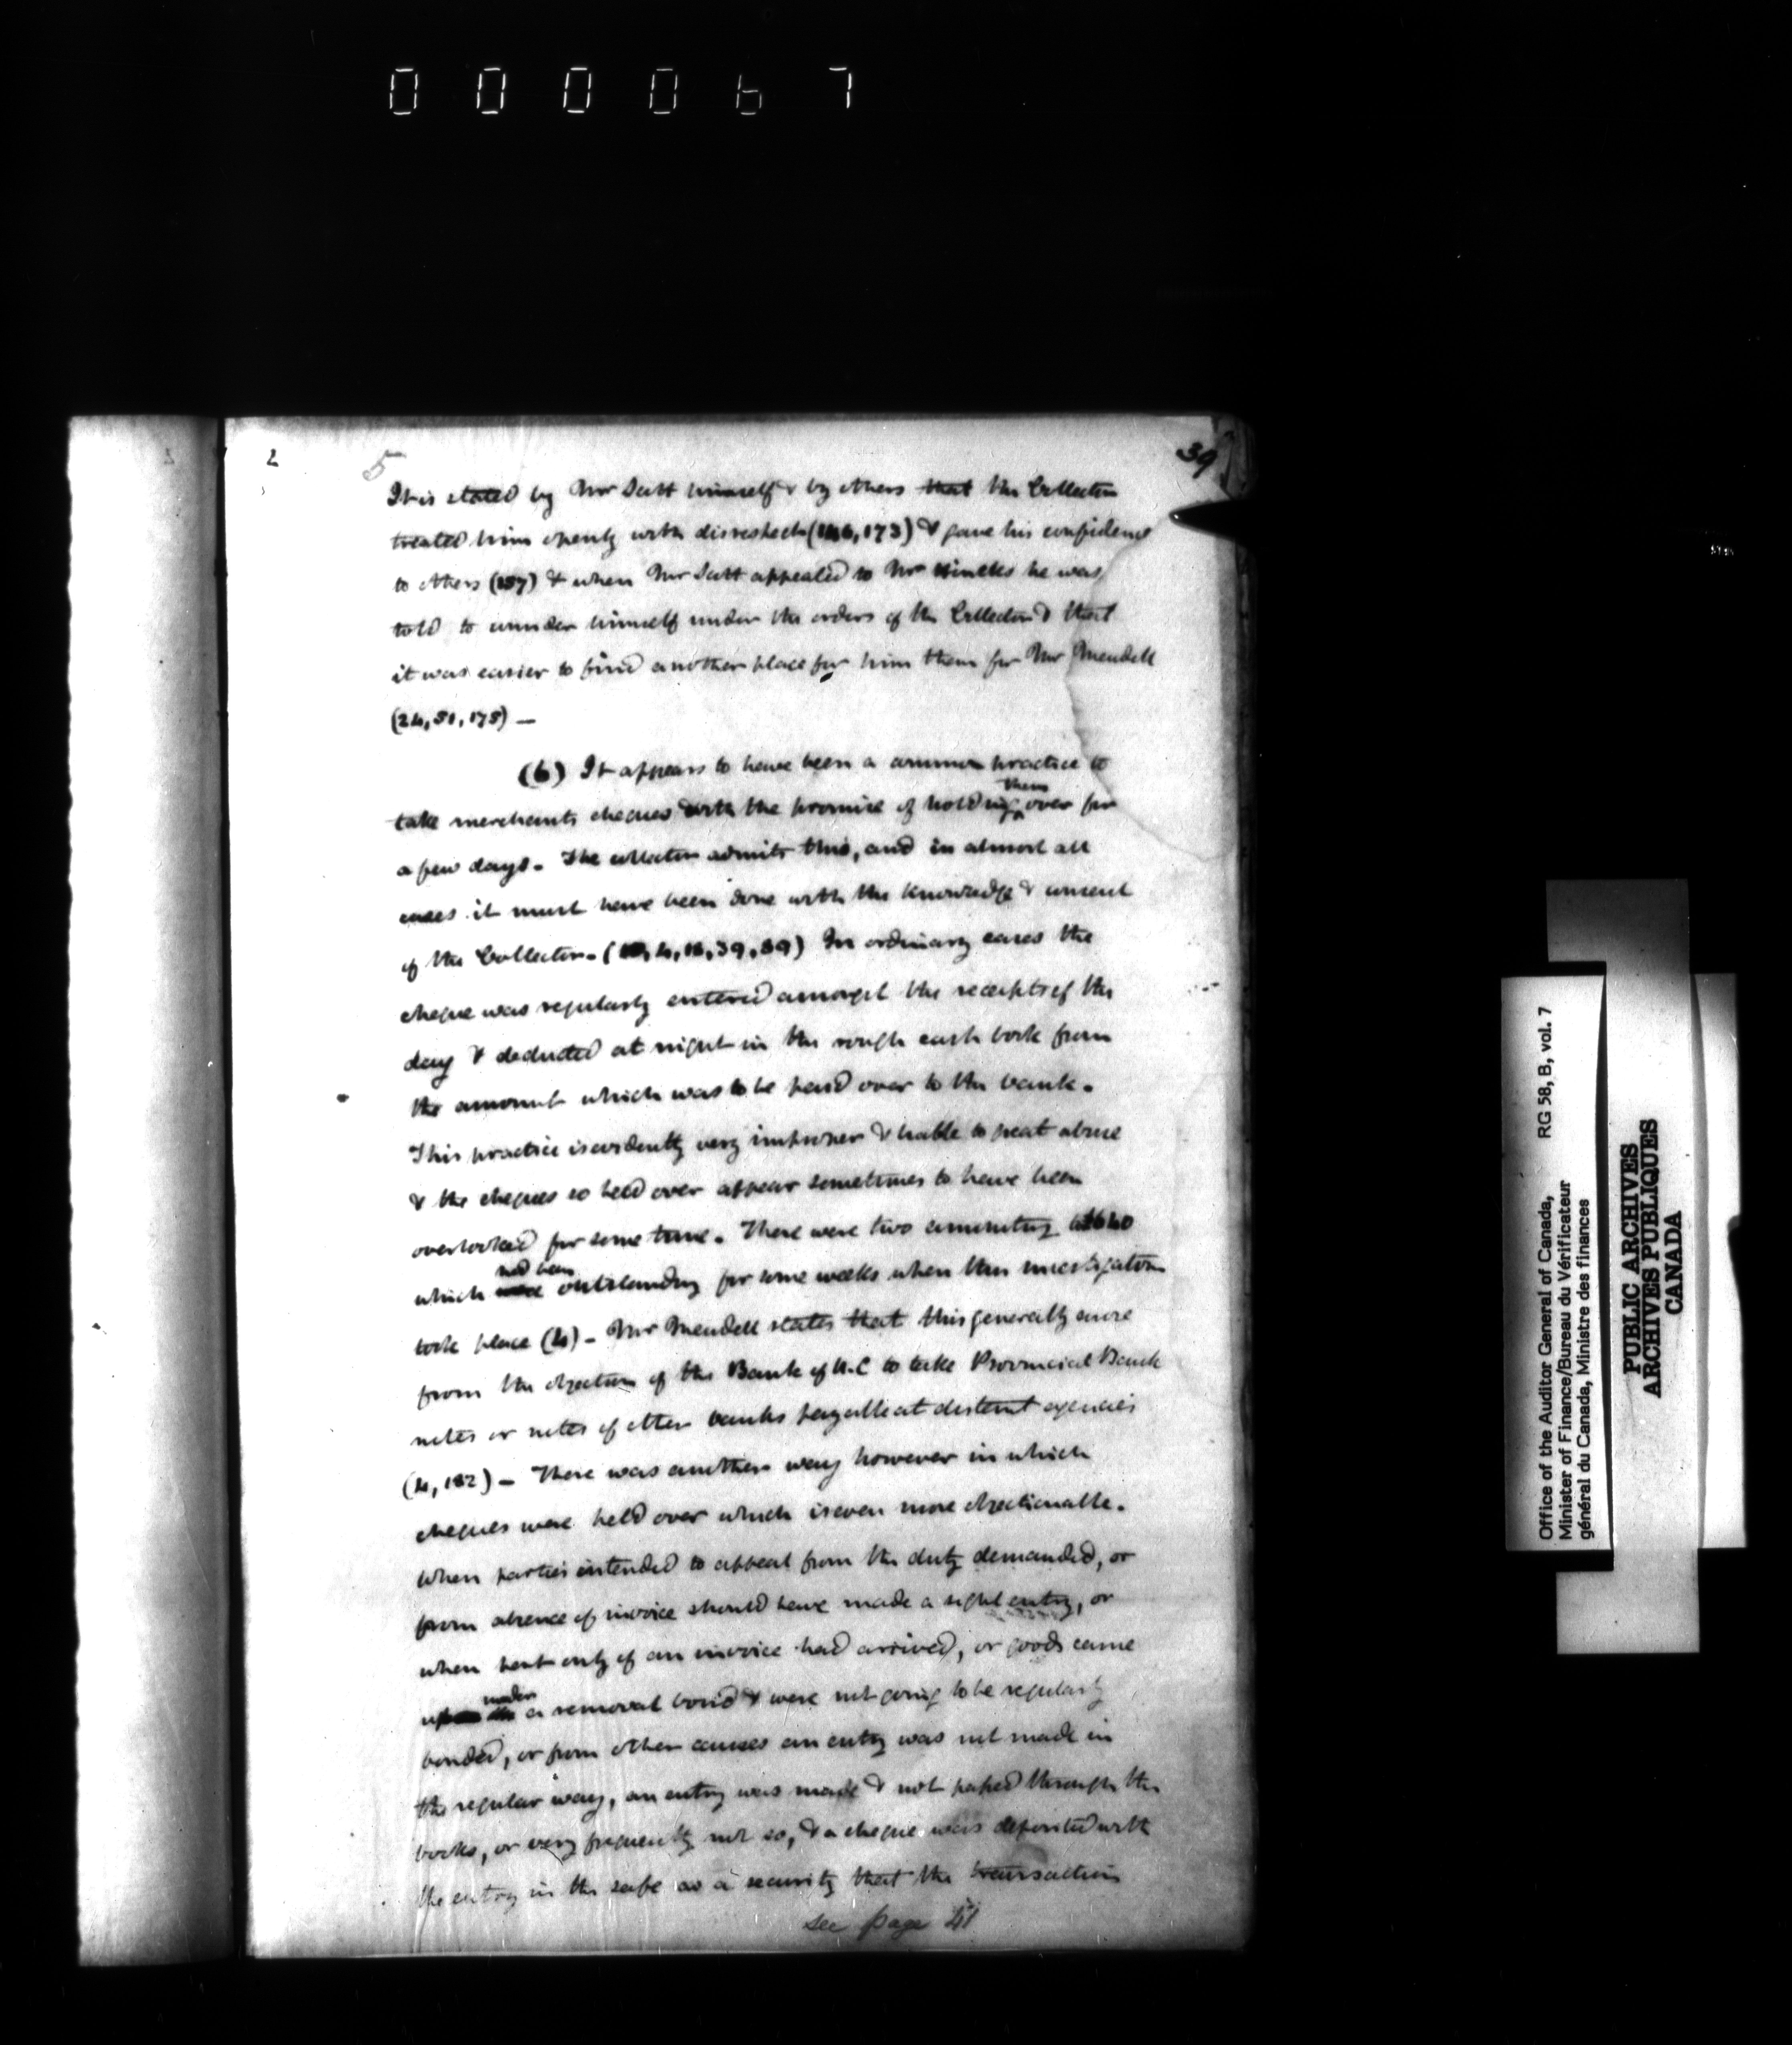 000067
2
5
39
It is stated by Mr Scott himself & by others that the Collector
treated him openly with disrespect (146, 173) & gave his confidence
to others (157) & when Mr Scott appealed to Mr he was
told to consider himself under the orders of the Collector & that
it was easier to find another place for him than for Mr Meudell
(24, 51, 175) —
(6) It appears to have been a common practice to
take merchants cheques with the promise of holding them over for
a few days. The collector admits this, and in almost all
cases it must have been done with the knowledge & consent
of the Collector. ( 4, 18, 39, 89) In ordinary cases the
cheque was regularly entered amongst the receipts of the
day & deducted at night in the rough cash book from
the amount which was to be paid over to the bank.
This practice is evidently very improper & liable to great abuse
& the cheques so held over appear sometimes to have been
overlooked for some time. There were two amounting to £640
which had been outstanding for some weeks when this investigation
took place (4) - Mr Meudell states that this generally arose
from the objection of the Bank of U.C to take Provincial Bank
notes or notes of other banks payable at distant agencies
(4, 182) — There was another way however in which
cheques were held over which is even more objectionable.
When parties intended to appeal from the duty demanded, or
from absence of invoice should have made a sight entry, or
when part only of an invoice had arrived, or goods came
up under a removal bond & were not going to be regularly
bonded, or from other causes an entry was not made in
the regular way, an entry was made & not passed through the
books, or very frequently not so, & a cheque was deposited with
the entry in the safe as a security that the transaction
see page 41
Office of the Auditor General of Canada, RG 58, B, vol. 7
Minister of Finance/Bureau du Vérificateur
général du Canada, Ministre des finances
PUBLIC ARCHIVES
ARCHIVES PUBLIQUES
CANADA